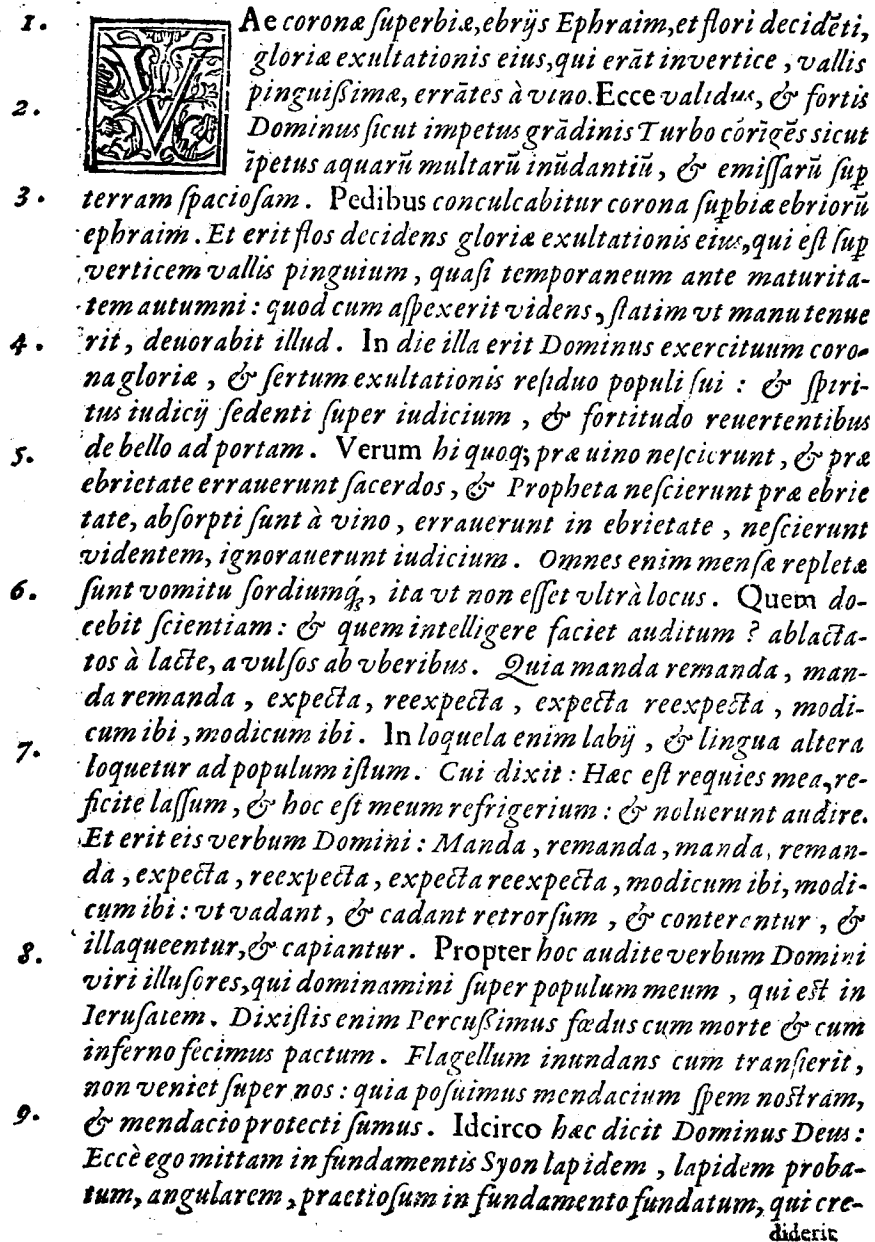 1. VAe coronæ ſuperbiæ, ebrijs Ephraim, et flori decidẽti,
gloriæ exultationis eius, qui erãt invertice, vallis
2. pinguiſsimæ, errãtes à vino. Ecce validus, & fortis
Dominus ſicut impetus grãdinis Turbo cõrĩgẽs sicut
ĩpetus aquarũ multarũ inũdantiũ, & emiſſarũ ſuꝑ
3. terram ſpacioſam. Pedibus conculcabitur corona ſuꝑbiæ ebriorũ
ephraim. Et erit flos decidens gloriæ exultationis eius, qui eſt ſuꝑ
verticem vallis pinguium, quaſi temporaneum ante maturita-
tem autumni: quod cum aſpexerit videns, ſtatim vt manu tenue
4. rit, deuorabit illud. In die illa erit Dominus exercituum coro-
na gloriæ, & ſertum exultationis reſiduo populi ſui: & ſpiri-
tus iudicij ſedenti ſuper iudicium, & fortitudo reuertentibus
5. de bello ad portam. Verum hi quoq; præ uino neſcierunt, & præ
ebrietate errauerunt ſacerdos, & Propheta neſcierunt præ ebrie
tate, abſorpti ſunt à vino, errauerunt in ebrietate, neſcierunt
videntem, ignorauerunt iudicium. Omnes enim menſæ repletæ
6. ſunt vomitu ſordiumq́;, ita vt non eſſet vltrà locus. Quem do-
cebit ſcientiam: & quem intelligere faciet auditum? ablacta-
tos à lacte, avulſos ab vberibus. Quia manda remanda, man-
da remanda, expecta, reexpecta, expecta reexpecta, modi-
cum ibi, modicum ibi. In loquela enim labij, & lingua altera
7. loquetur ad populum iſtum. Cui dixit: Hæc eſt requies mea, re-
ficite laſſum, & hoc eſt meum refrigerium: & noluerunt audire.
Et erit eis verbum Domini: Manda, remanda, manda, reman-
da, expecta, reexpecta, expecta reexpecta, modicum ibi, modi-
cum ibi: vt vadant, & cadant retrorſum, & conterentur, &
8. illaqueentur, & capiantur. Propter hoc audite verbum Domini
viri illuſores, qui dominamini ſuper populum meum, qui eſt in
Ieruſalem. Dixiſtis enim Percuſsimus fœdus cum morte & cum
inferno fecimus pactum. Flagellum inundans cum tranſierit,
non veniet ſuper nos: quia poſuimus mendacium ſpem noſtram,
9. & mendacio protecti ſumus. Idcirco hæc dicit Dominus Deus:
Eccè ego mittam in fundamentis Syon lapidem, lapidem proba-
tum, angularem, praetioſum in fundamento fundatum, qui cre-
diderit